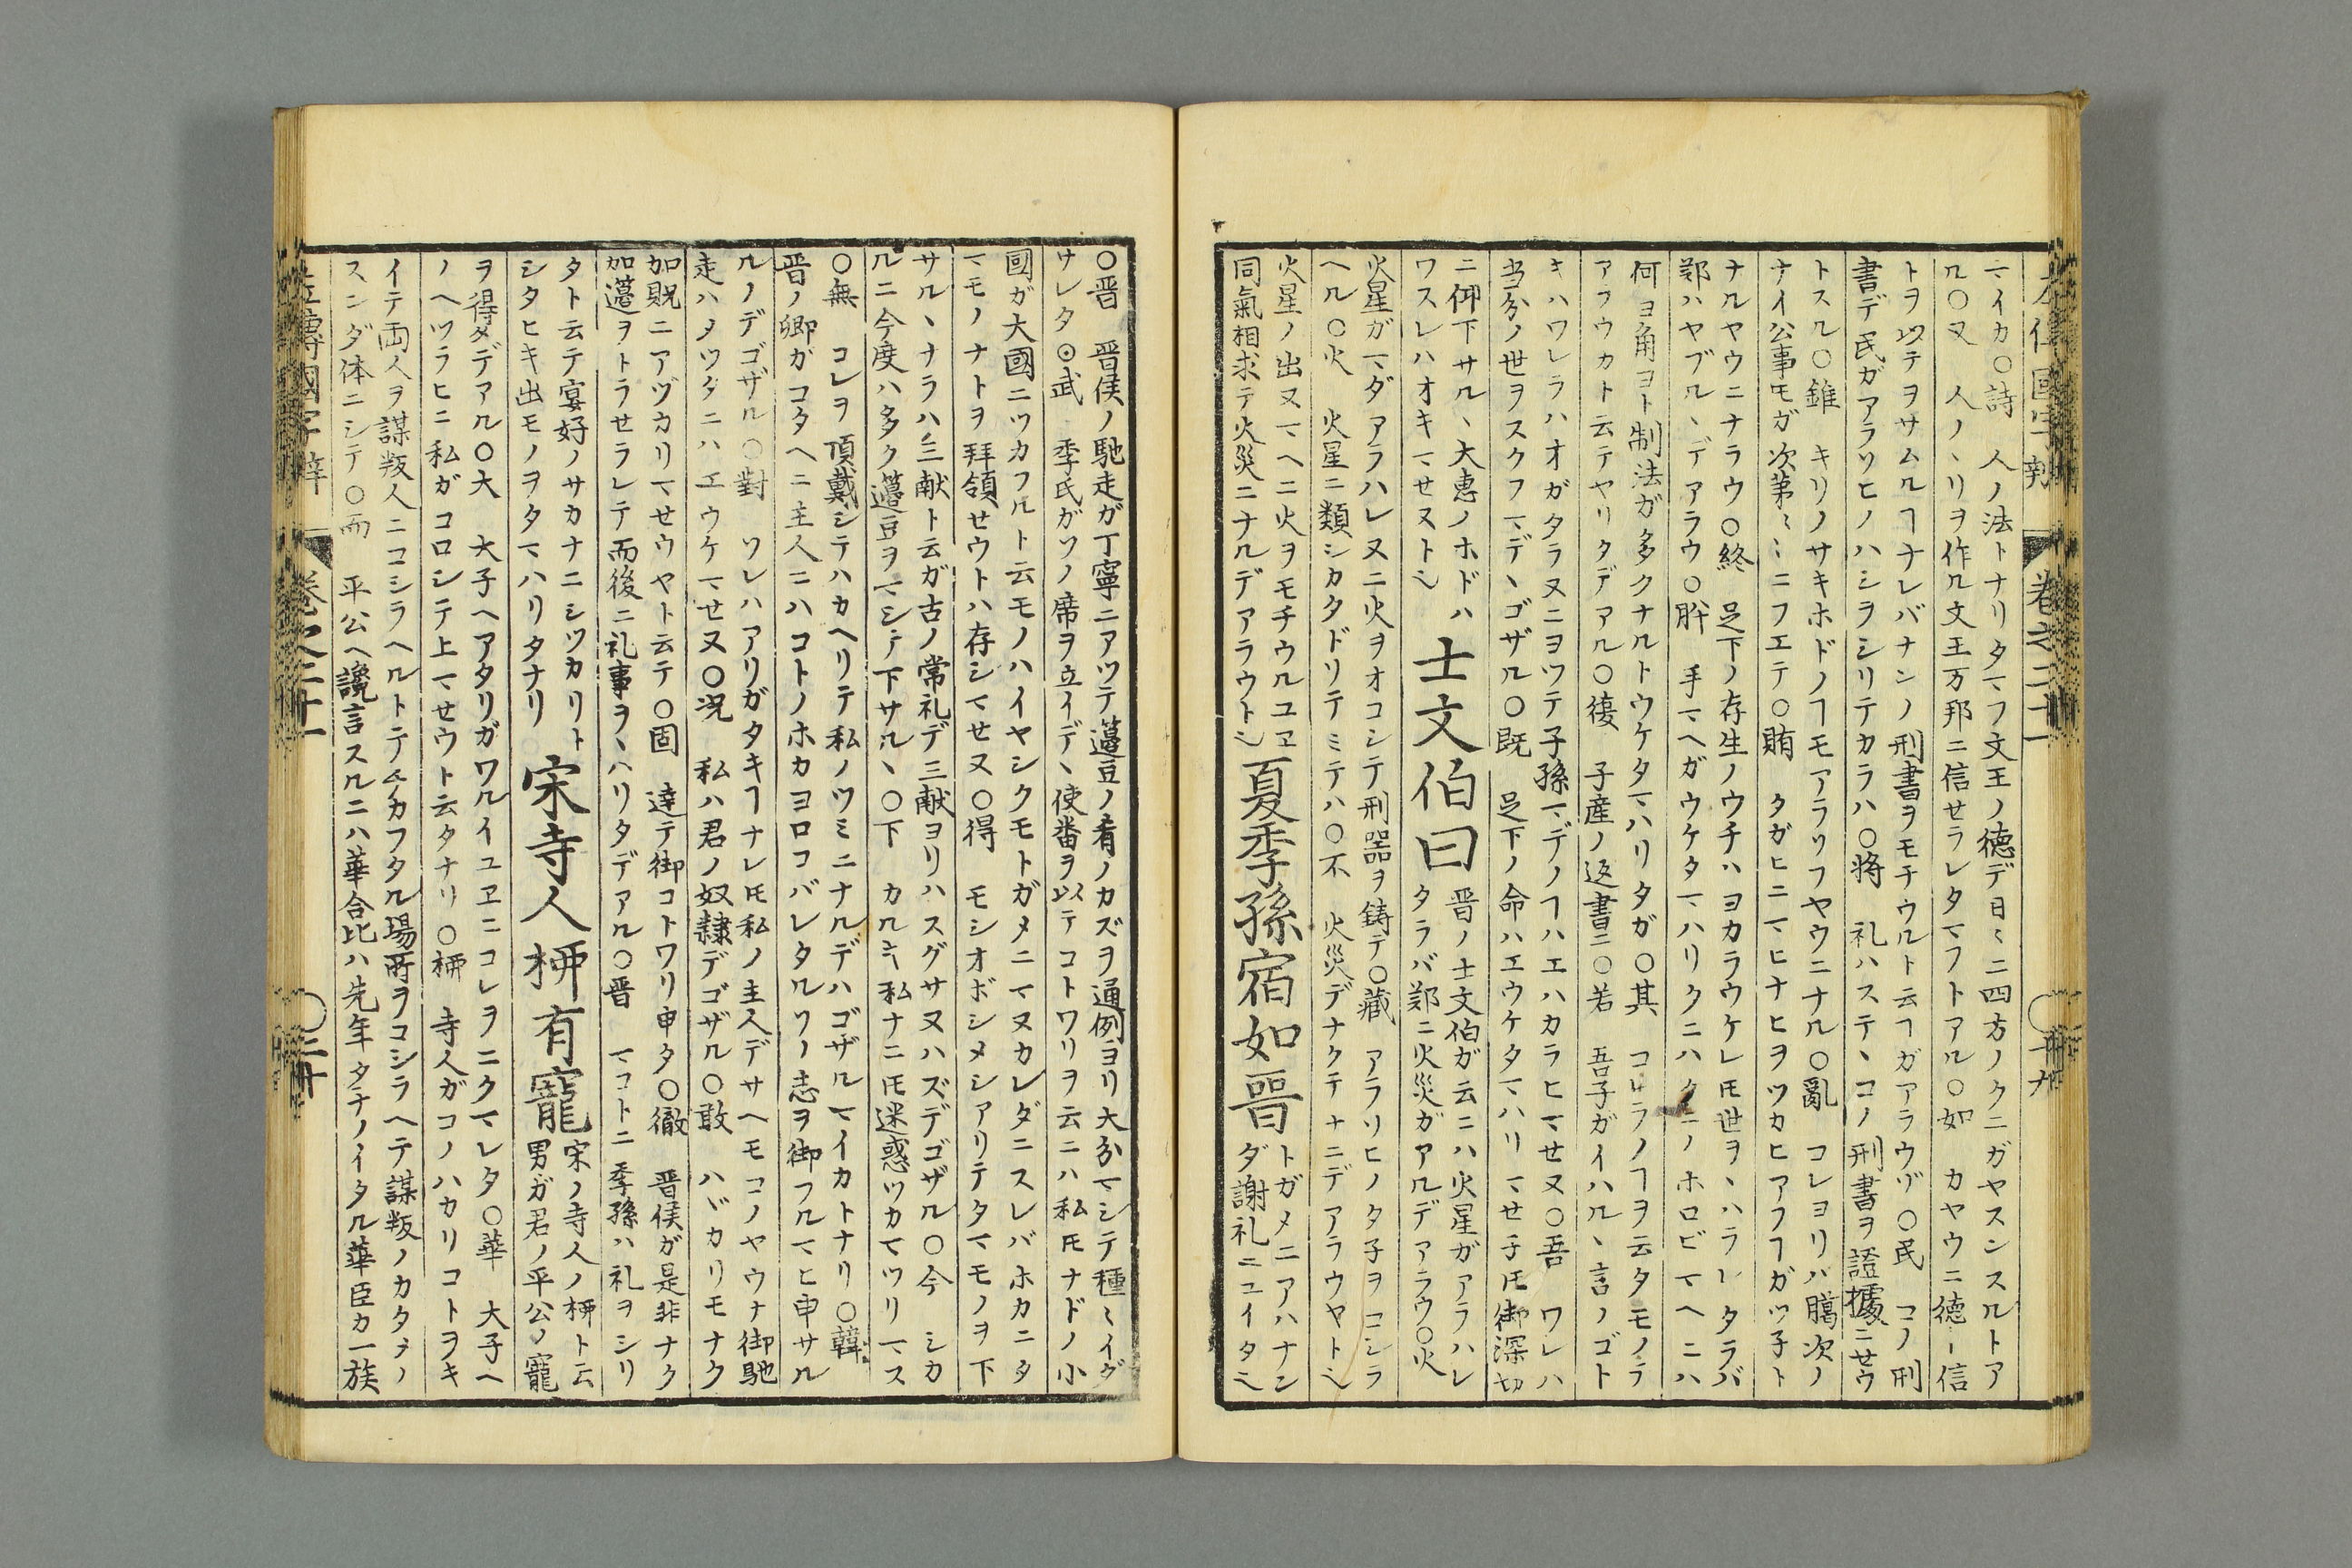 左傳國字辯 卷之二十一 ○二十九
マイカ○詩 人ノ法トナリタマフ文王ノ徳デ日ミニ四方ノクニガヤスンスルトア
ル○又 人ノヽリヲ作ル文王万邦ニ信セラレタマフトアル○如 カヤウニ徳ト信
トヲ以テヲサムルヿナレバナンノ刑書ヲモチウルト云ヿガアラウゾ○民 コノ刑
書デ民ガアラソヒノハシヲシリテカラハ○将 礼ハステヽコノ刑書ヲ證據ニセウ
トスル○錐 キリノサキホドノヿモアラソフヤウニナル○亂 コレヨリハ臈次ノ
ナイ公事モガ次第ミミニフエテ○賄 タガヒニマヒナヒヲツカヒアフヿガツ子ト
ナルヤウニナラウ○終 足下ノ存生ノウチハヨカラウケレ𪜈世ヲヽハラレタラバ
鄭ハヤブルヽデアラウ○肸 手マヘガウケタマハリクニハクニノホロビマヘニハ
何ヨ角ヨト制法ガ多クナルトウケタマハリタガ○其 コレラノヿヲ云タモノテ
アフウカト云テヤリタデアル○復 子産ノ返書ニ○若 吾子ガイハルヽ言ノゴト
キハワレラハオガタラヌニヨツテ子孫マデノヿハエハカラヒマせヌ○吾 ワレハ
当分ノ世ヲスクフマデヽゴザル○既 足下ノ命ハエウケタマハリマせ子𪜈御深切
ニ仰下サルヽ大惠ノホドハ
ワスレハオキマせヌト也
士文伯曰
晋ノ士文伯ガ云ニハ火星ガアラハレ
タラバ鄭ニ火災ガアルデアラウ○火
火星ガマダアラハレヌニ火ヲオコシテ刑器ヲ鋳テ○藏 アラソヒノタ子ヲコシラ
ヘル○火 火星ニ類シカタドリテミテハ○不 火災デナクテナニデアラウヤト也
火星ノ出ヌマヘニ火ヲモチウルユヱ
同氣相求テ火災ニナルデアラウト也
夏季孫宿如晋
トガメニアハナン
ダ謝礼ニユイタ也
○晋 晋侯ノ馳走ガ丁寧ニアツテ籩豆ノ肴ノカズヲ通例ヨリ大分マシテ種ミイダ
サレタ⊙武 季氏ガソノ席ヲ立イデヽ使番ヲ以テコトワリヲ云ニハ私𪜈ナドノ小
國ガ大國ニツカフルト云モノハイヤシクモトガメニマヌカレダニスレバホカニタ
マモノナトヲ拜領せウトハ存シマせヌ○得 モシオボシメシアリテタマモノヲ下
サルヽナラハ三献ト云ガ古ノ常礼デ三献ヨリハスグサヌハズデゴザル○今 シカ
ルニ今度ハ多ク籩豆ヲマシテ下サルヽ○下 カルキ私ナニ𪜈迷惑ツカマツリマス
○無 コレヲ頂戴シテハカヘリテ私ノツミニナルデハゴザルマイカトナリ○韓
晋ノ卿ガコタヘニ主人ニハコトノホカヨロコバレタルソノ志ヲ御フルマヒ申サル
ルノデゴザル○對 ソレハアリガタキヿナレ𪜈私ノ主人デサヘモコノヤウナ御馳
走ハタツタニハエウケマせヌ○况 私ハ君ノ奴隷デゴザル○敢 ハヾカリモナク
加貺ニアヅカリマせウヤト云テ○固 達テ御コトワリ申タ○徹 晋侯ガ是非ナク
加籩ヲトラせラレテ而後ニ礼事ヲヽハリタデアル○晋 マコトニ季孫ハ礼ヲシリ
タト云テ宴好ノサカナニシツカリト
シタヒキ出モノヲタマハリタナリ
宋寺人柳有寵
宋ノ寺人ノ柳ト云
男ガ君ノ平公ノ寵
ヲ得タデアル○大 大子ヘアタリガワルイユヱニコレヲニクマレタ○華 大子ヘ
ノヘツラヒニ私ガコロシテ上マせウト云タナリ○柳 寺人ガコノハカリコトヲキ
イテ両人ヲ謀叛人ニコシラヘルトテ〆カフタル場所ヲコシラヘテ謀叛ノカタラノ
スンダ体ニシテ○而 平公ヘ讒言スルニハ華合比ハ先年タチノイタル華臣カ一族
左傳國字辯 卷之二十一 ○三十